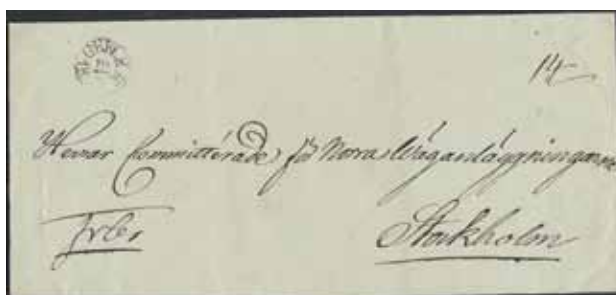 14
Herrar Committérade för Norra Väganläggningarne
frbr
Stockholm